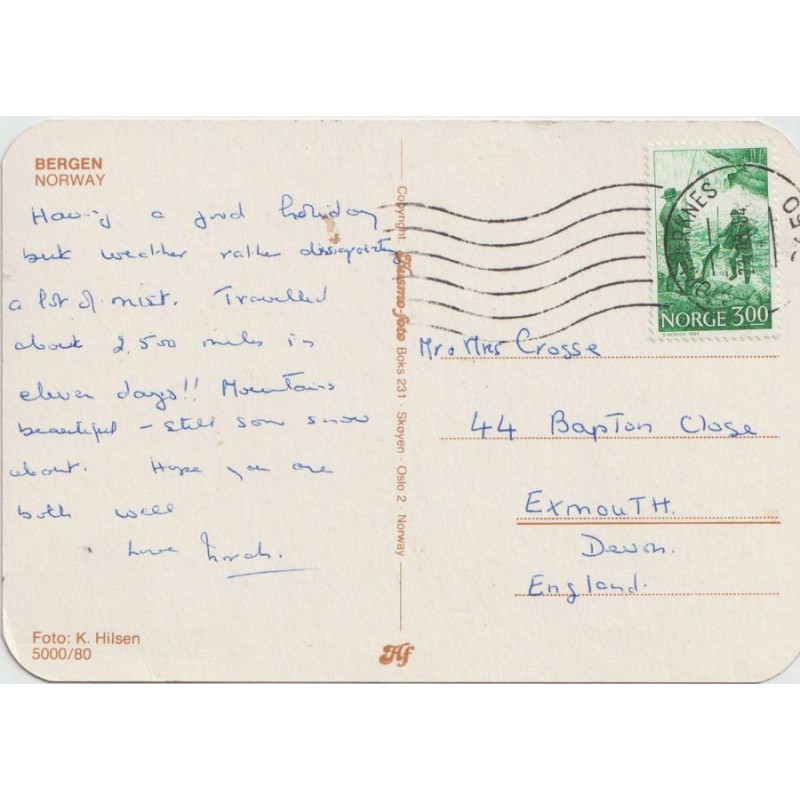 BERGEN
NORWAY
Having a good holiday
but weather rather dissapointing
a lot of mist. Travelled
about 2,500 miles in
eleven days!! Mountains
beautiful - still som snow
about. Hope you are
both well
Love Norah.
Foto: K. Hilsen
5000/80
Copyright: Husmo-foto Boks 231 · Skøyen · Oslo 2 · Norway
Hf
NORGE 3.00
Mr & Mrs Crosse
44 Bapton Close
EXMOUTH.
Devon.
England.